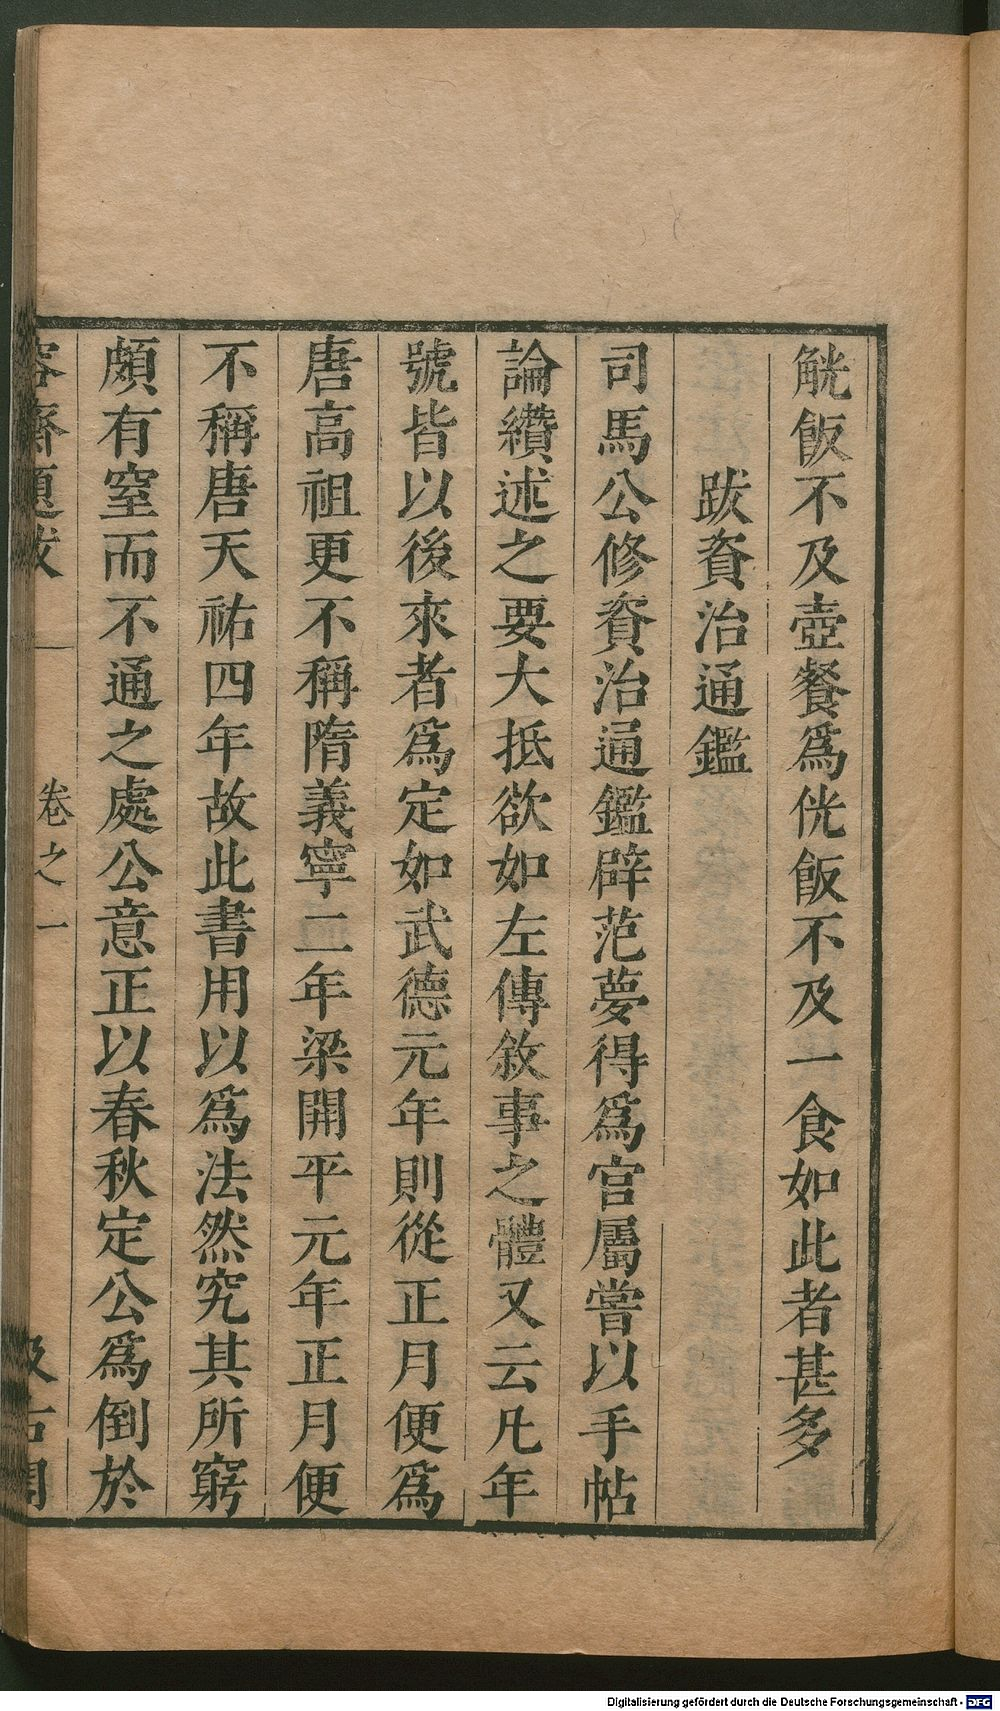 觥飯不及壺餐爲侊飯不及一食如此者甚多
跋資治通鑑
司馬公修資治通鑑辟范夢得爲官屬嘗以手帖
論纘述之要大抵欲如左傳敘事之體又云凡年
號皆以後來者爲定如武德元年則從正月便爲
唐高祖更不稱隋義寧二年梁開平元年正月便
不稱唐天祐四年故此書用以爲法然究其所窮
頗有窒而不通之處公意正以春秋定公爲倒於
容齋題跋 卷之一 汲古閣
Digitalisierung gefördert durch die Deutsche Forschungsgemeinschaft - DFG